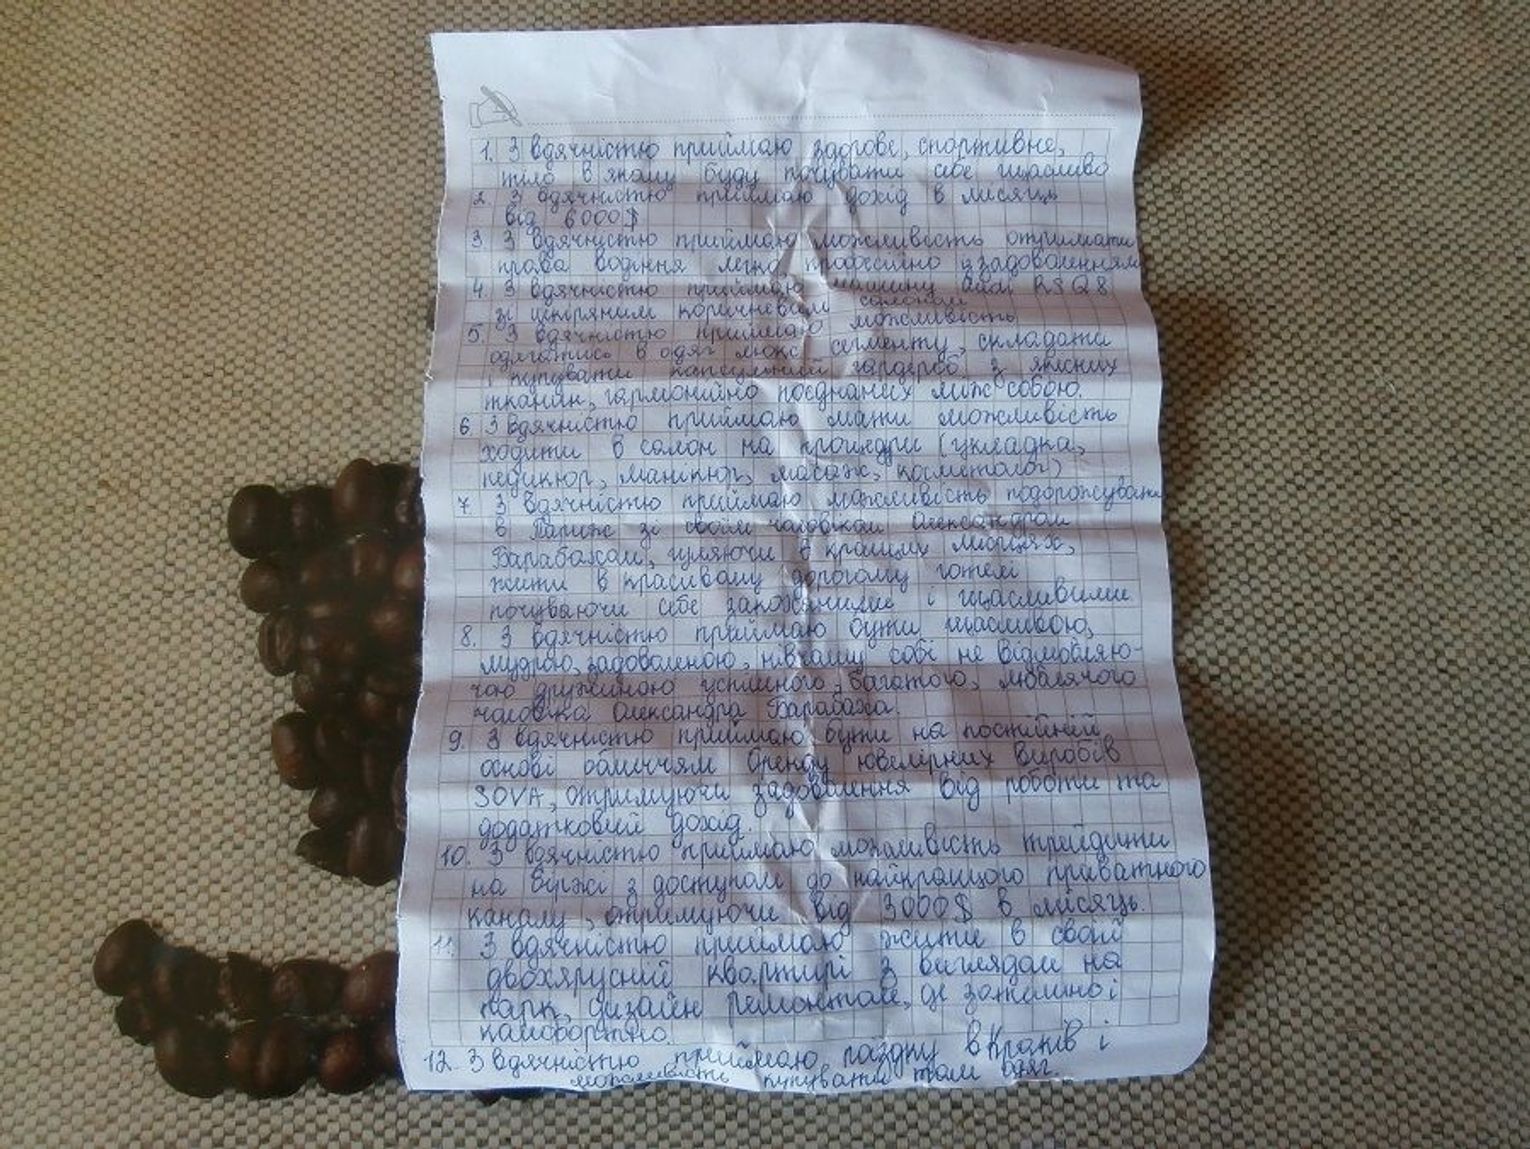 1. З вдячністю приймаю здорове, спортивне,
тіло в якому буду почувати себе щасливо
2. З вдячністю приймаю дохід в місяць
від 6000$
3. З вдячністю приймаю можливість отримати
права водіння легко професійно із задоволенням
4. З вдячністю приймаю машину audi RSQ8
зі шкіряним коричневим салоном
5. З вдячністю приймаю можливість
одягатись в одяг люкс сегменту, складати
і купувати капсульний гардероб з якісних
тканин, гармонійно поєднаних між собою.
6. З вдячністю приймаю мати можливість
ходити в салон на процедри (укладка,
педикюр, манікюр, масаж, косметолог)
7. З вдячністю приймаю можливість подорожувати
в Париж зі своїм чоловіком Олександром
Барабахом, гуляючи в кращих місцях,
жити в красивому дорогому готелі
почуваючи себе закоханими і щасливими
8. З вдячністю приймаю бути щасливою,
мудрою, задоволеною, ні в чому собі не відмовляю-
чою дружиною успішного, багатого, люблячого
чоловіка Олександра Барабаха.
9. З вдячністю приймаю бути на постійній
основі обличчям бренду ювелірних виробів
SOVA, отримуючи задоволення від роботи та
додатковий дохід.
10. З вдячністю приймаю можливість трейдити
на біржі з доступом до найкращого приватного
каналу, отримуючи від 3000$ в місяць.
11. З вдячністю приймаю жити в своїй
двохярусній квартирі з виглядом на
парк, дизайн ремонтом, де затишно і
комфортно.
12. З вдячністю приймаю поїздку в Краків і
можливість купувати там одяг.